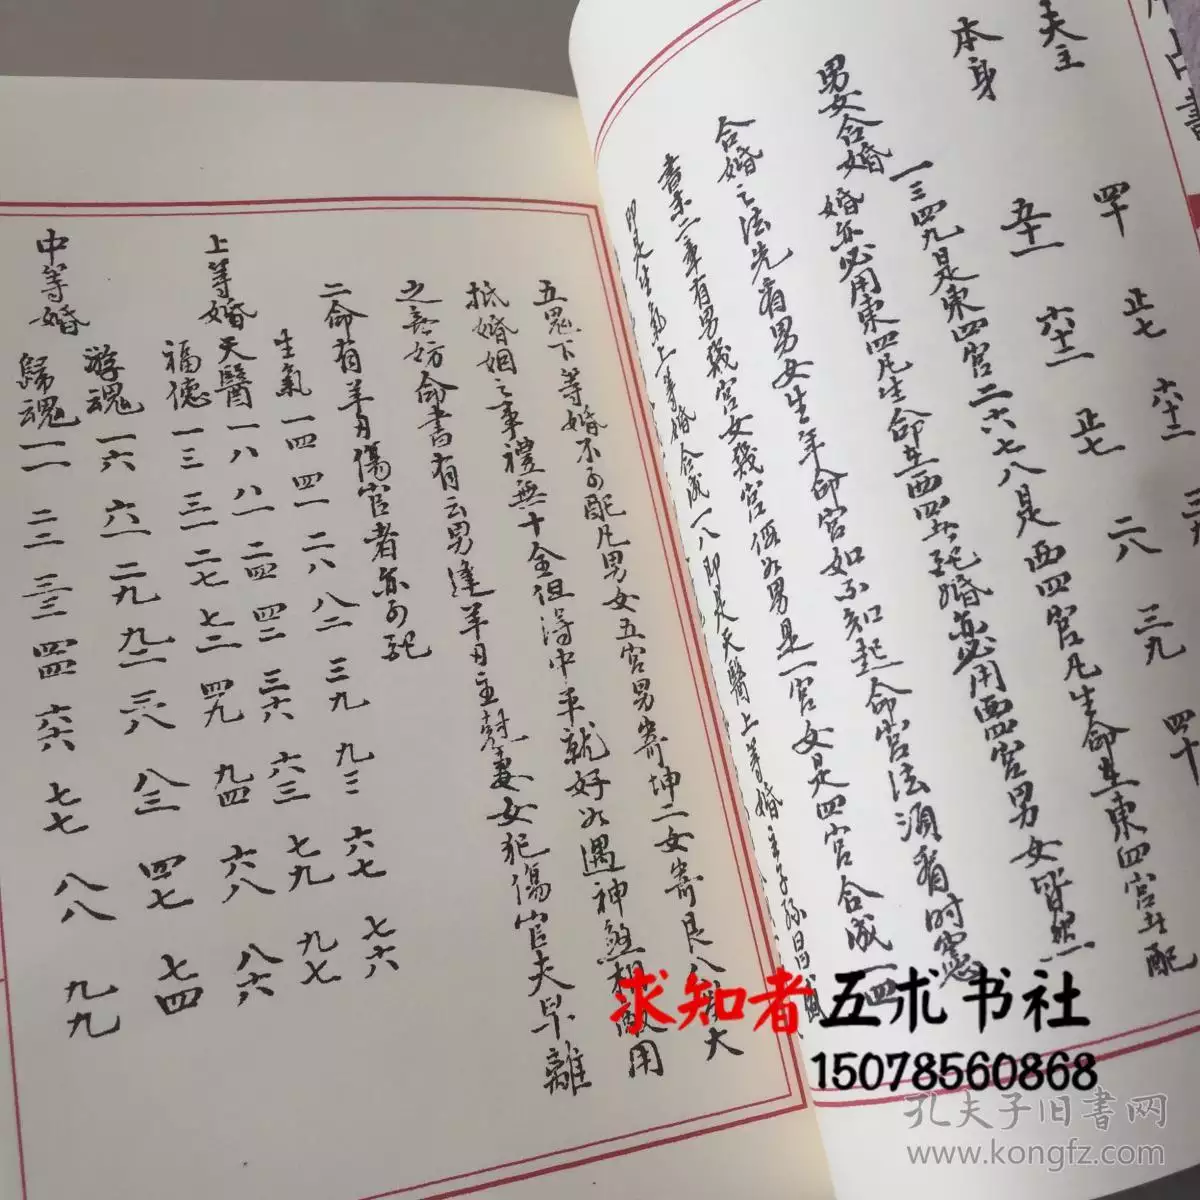 夫主
四十 正七 六十二 三九
本身
五十一 六十二 正七 二八 三九 四十
男女合婚
一三四九是東四宮二六七八是西四宮凡生命在東四宮者配
婚亦必用東四凡生命在西四者配婚亦必用西四宮男女皆然
合婚之法先看男女生年命宮如不知起命宮法須看時憲
書末二章看男幾宮女幾宮假如男是一宮女是四宮合成一四
即是生氣上等婚合成一八即是天醫上等婚主子孫昌盛
五鬼下等婚不可配凡男女五宮男寄坤二女寄艮八宮大
抵婚姻之事禮無十全但得中平就好如遇神煞相敵用
之無妨命書有云男逢羊刃主尅妻女犯傷官夫早離
二命有羊刃傷官者亦可配
生氣 一四 四一 二八 八二 三九 九三 六七 七六
上等婚
天醫 一八 八一 二四 四二 三六 六三 七九 九七
福德 一三 三一 二七 七二 四九 九四 六八 八六
游魂 一六 六一 二九 九二 三八 八三 四七 七四
中等婚
歸魂 一一 二二 三三 四四 六六 七七 八八 九九
占書
求知者 五术书社
15078560868
孔夫子旧书网
www.kongfz.com